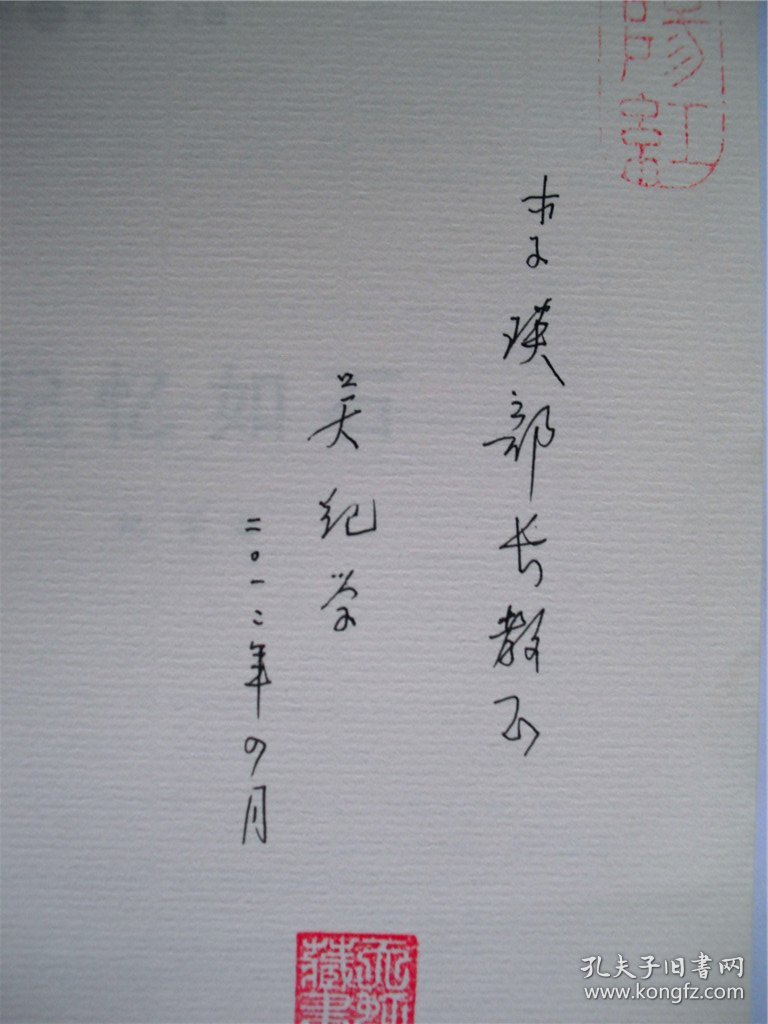 李瑛部长教正
吴纪学
二〇一二年四月
藏书
孔夫子旧书网
www.kongfz.com